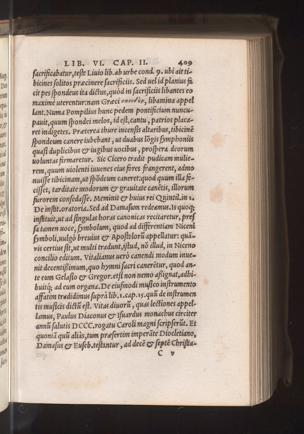 LIB. VI. CAP. II. 409
sacrificabatur, teste Liuio lib. ab urbe cond. 9. ubi ait ti-
bicines solitos præcinere sacrificiis. Sed uel id planius fu
cit pes spondeus ita dictus, quòd in sacrificiis libantes eo
maximè uterentur: nam Græci libamina appel
lant. Numa Pompilius hunc pedem pontificium nuncu-
pauit, quum spondei melos, id est, cantu, patrios placa-
ret indigetes. Præterea thure incensis altaribus, tibicinē
spondeum canere iubebant, ut duabus lōgis symphoniis
quasi duplicibus & iugibus uocibus, prospera deorum
uoluntas firmaretur. Sic Cicero tradit pudicam mulie-
rem, quum uiolenti iuuenes eius fores frangerent, admo
nuisse tibicinam, ut spōdeum caneret: quod quum illa fe-
cisset, tarditate modorum & grauitate canētis, illorum
furorem consedasse. Meminit & huius rei Quintil. in 1.
De instit. oratoria. Sed ad Damasum redeamus. Is quoq;
instituit, ut ad singulas horas canonicas recitaretur, pres
sa tamen uoce, symbolum, quod ad differentiam Niceni
symboli, uulgò breuius & Apostolorū appellatur: quā-
uis certius sit, ut multi tradunt, istud, nō illud, in Niceno
concilio editum. Vitalianus uerò canendi modum inue-
nit decentissimum, quo hymni sacri caneretur, quod an-
te eum Gelasio & Gregor. etsi non nemo assignat, adhi-
buitq; ad eum organa. De eiusmodi musico instrumento
affatim tradidimus suprà lib. 1. cap. 15. quū de instrumen
tis musicis dictū est. Vitas diuorū, quas lectiones appel-
lamus, Paulus Diaconus & Isuardus monachus circiter
annū salutis DCCC, rogatu Caroli magni scripserūt. Et
quoniā quū aliàs, tum præsertim imperāte Diocletiano,
Damasus & Euseb. testantur, ad decē & septē Christia-
C v